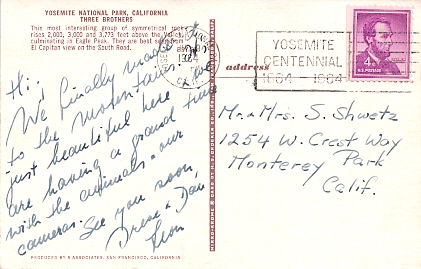 YOSEMITE NATIONAL PARK, CALIFORNIA
THREE BROTHERS
This most interesting group of symmetrical rocks
rises 2,000, 3,000 and 3,773 feet above the Valley,
culminating in Eagle Peak. They are best seen from
El Capitan view on the South Road.
Hi;
We finally made it
to the mountains. It's
just beautiful here. We
are having a grand time
with the animals & our
cameras. See you soon,
Irene & Dan
PRODUCED BY H ASSOCIATES, SAN FRANCISCO, CALIFORNIA
address
YOSEMITE
CENTENNIAL
1864 - 1964
4¢
U.S. POSTAGE
Mr. & Mrs. S. Shwetz
1254 W. Crest Way
Monterey Park
Calif.